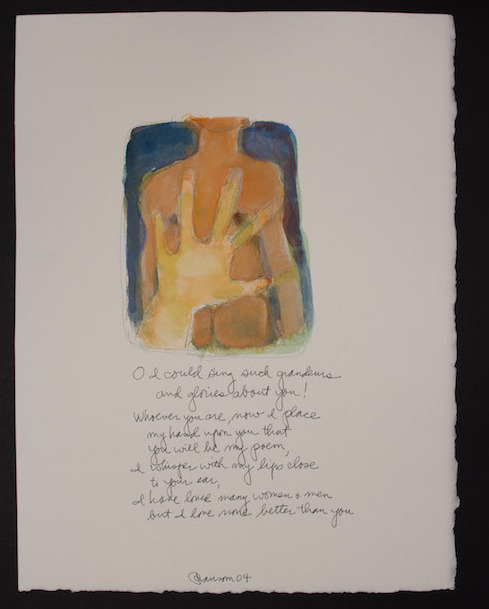 O I could sing such grandeurs
and glories about you!
Whoever you are, now I place
my hand upon you that
you will be my poem,
I whisper with my lips close
to your ear,
I have loved many women & men
but I love none better than you
Ransom 04